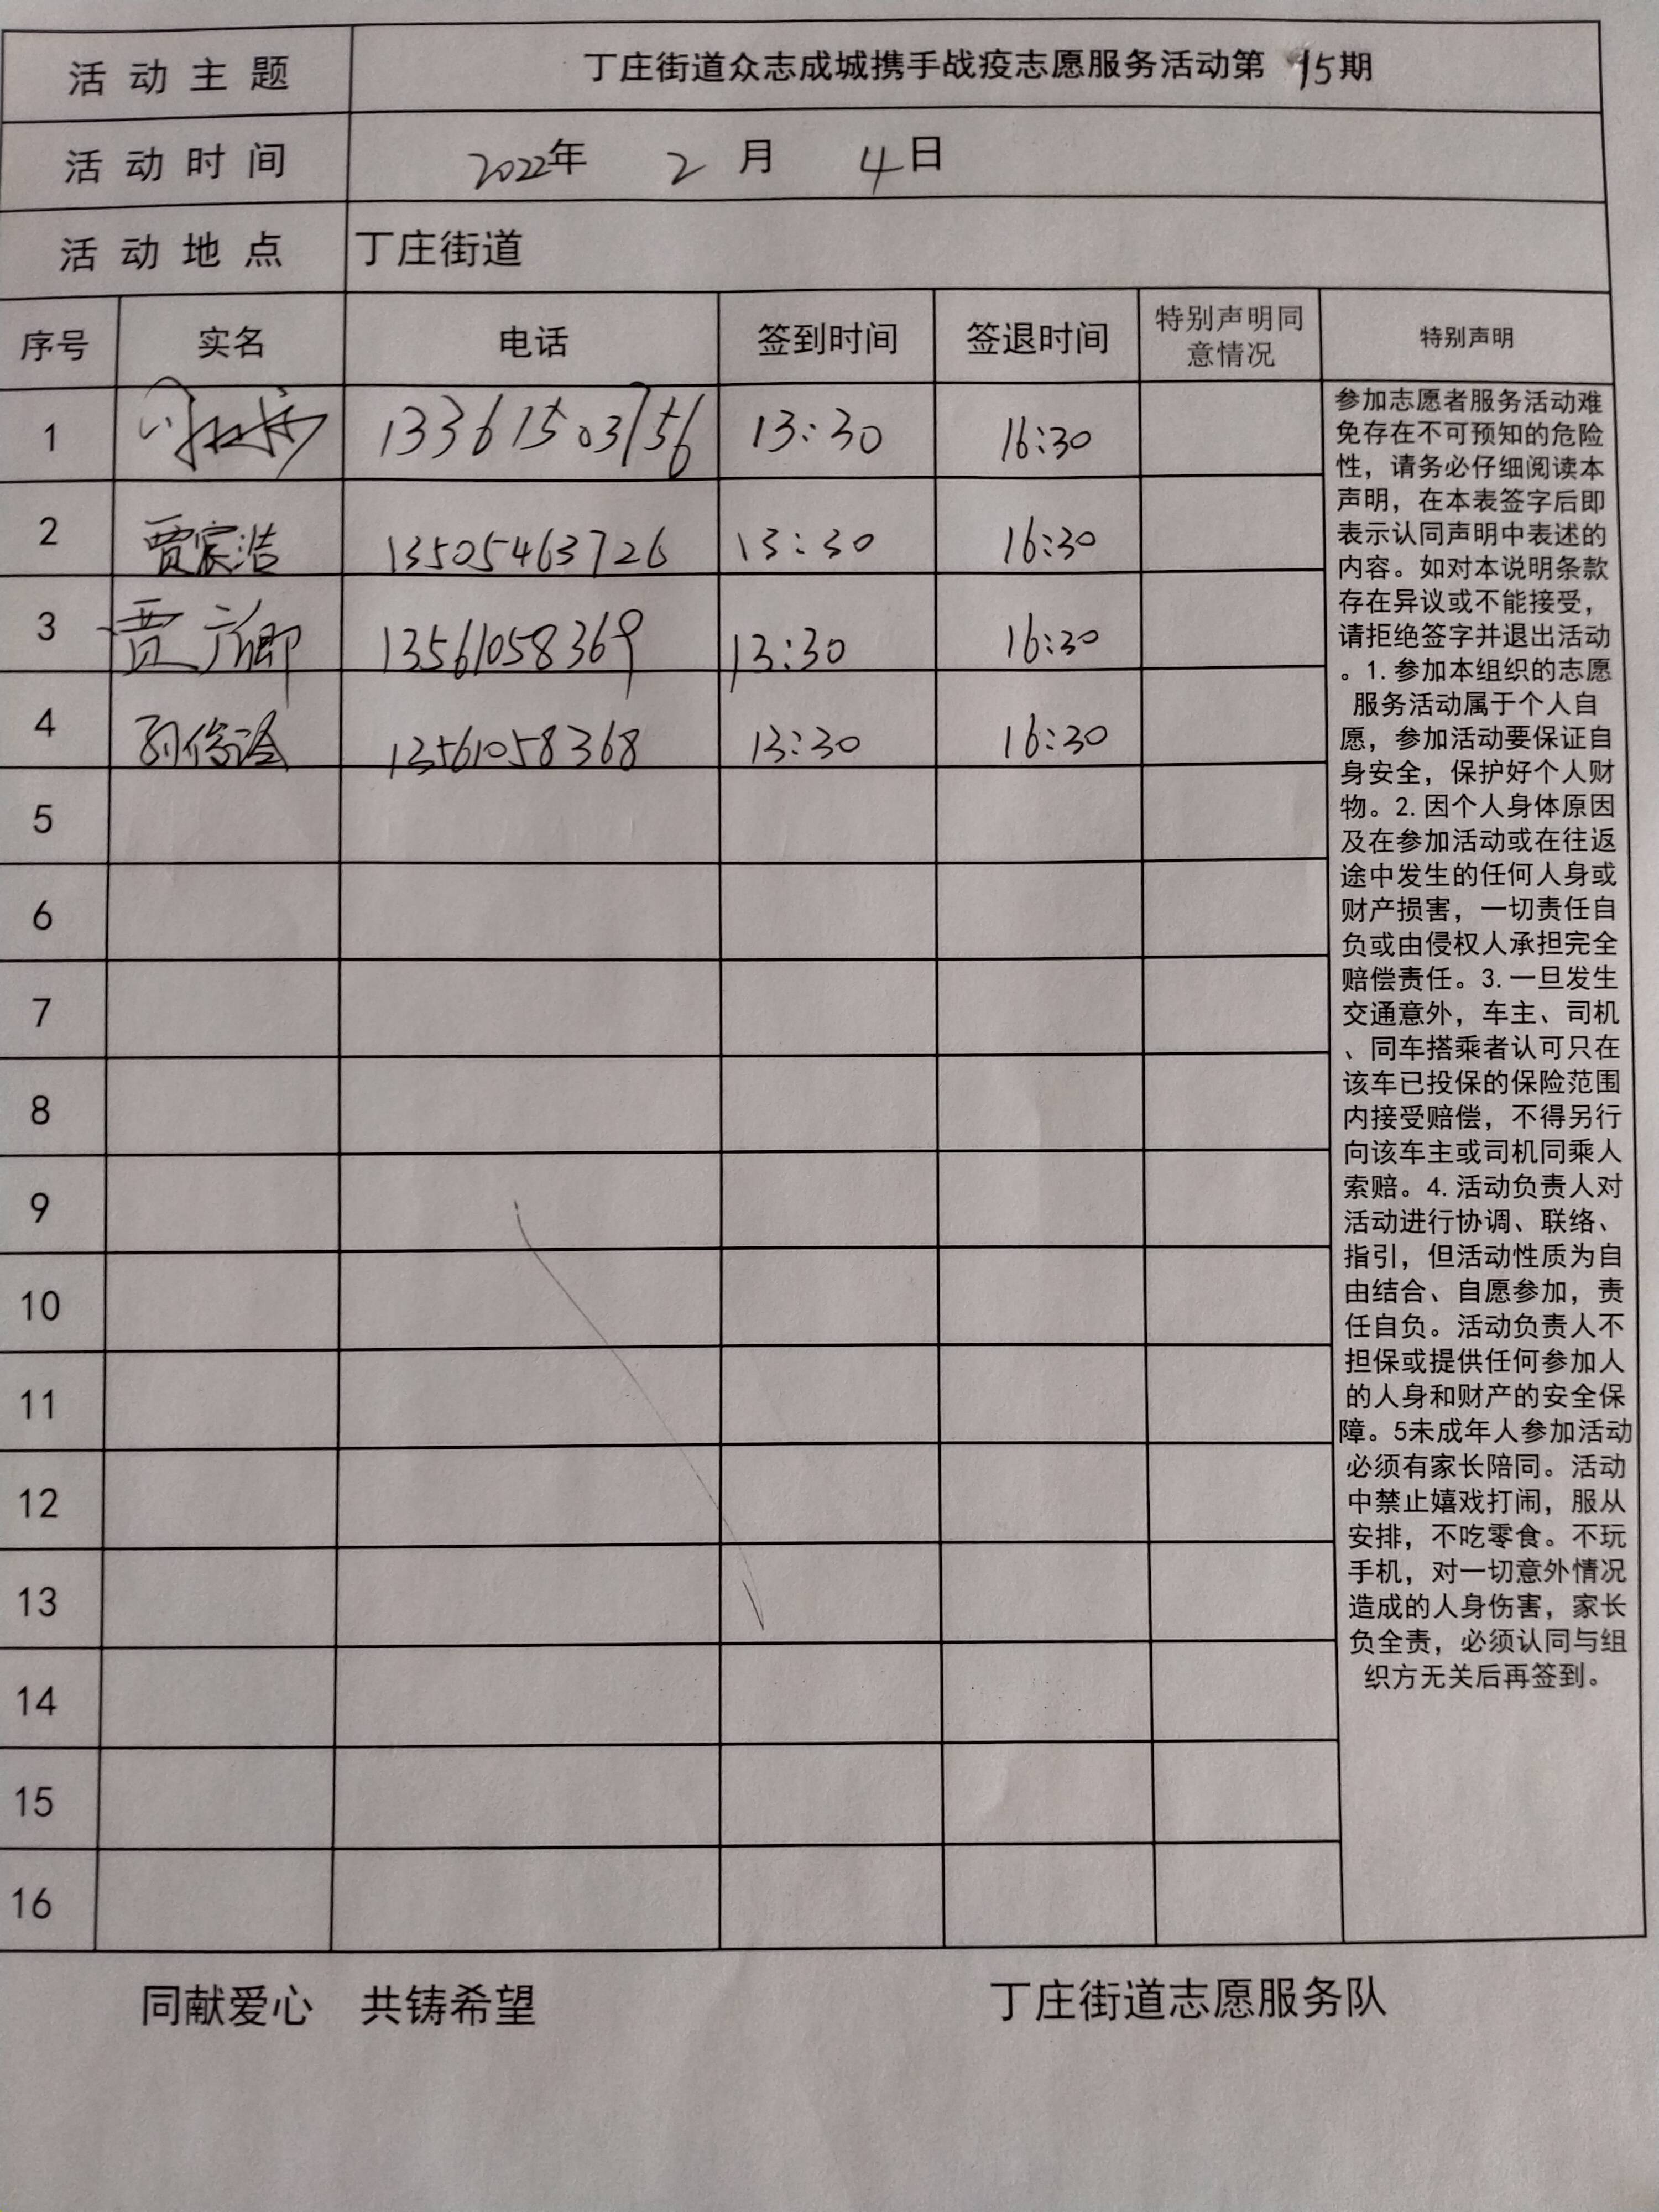 活动主题 丁庄街道众志成城携手战疫志愿服务活动第15期
活动时间 2022年 2月 4日
活动地点 丁庄街道
序号 实名 电话 签到时间 签退时间 特别声明同意情况 特别声明
1 13361503756 13:30 16:30
2 贾宸浩 13505463726 13:30 16:30
3 贾广卿 13561058369 13:30 16:30
4 13561058368 13:30 16:30
5
6
7
8
9
10
11
12
13
14
15
16
参加志愿者服务活动难
免存在不可预知的危险
性，请务必仔细阅读本
声明，在本表签字后即
表示认同声明中表述的
内容。如对本说明条款
存在异议或不能接受，
请拒绝签字并退出活动
。1.参加本组织的志愿
服务活动属于个人自
愿，参加活动要保证自
身安全，保护好个人财
物。2.因个人身体原因
及在参加活动或在往返
途中发生的任何人身或
财产损害，一切责任自
负或由侵权人承担完全
赔偿责任。3.一旦发生
交通意外，车主、司机
、同车搭乘者认可只在
该车已投保的保险范围
内接受赔偿，不得另行
向该车主或司机同乘人
索赔。4.活动负责人对
活动进行协调、联络、
指引，但活动性质为自
由结合、自愿参加，责
任自负。活动负责人不
担保或提供任何参加人
的人身和财产的安全保
障。5未成年人参加活动
必须有家长陪同。活动
中禁止嬉戏打闹，服从
安排，不吃零食。不玩
手机，对一切意外情况
造成的人身伤害，家长
负全责，必须认同与组
织方无关后再签到。
同献爱心 共铸希望 丁庄街道志愿服务队